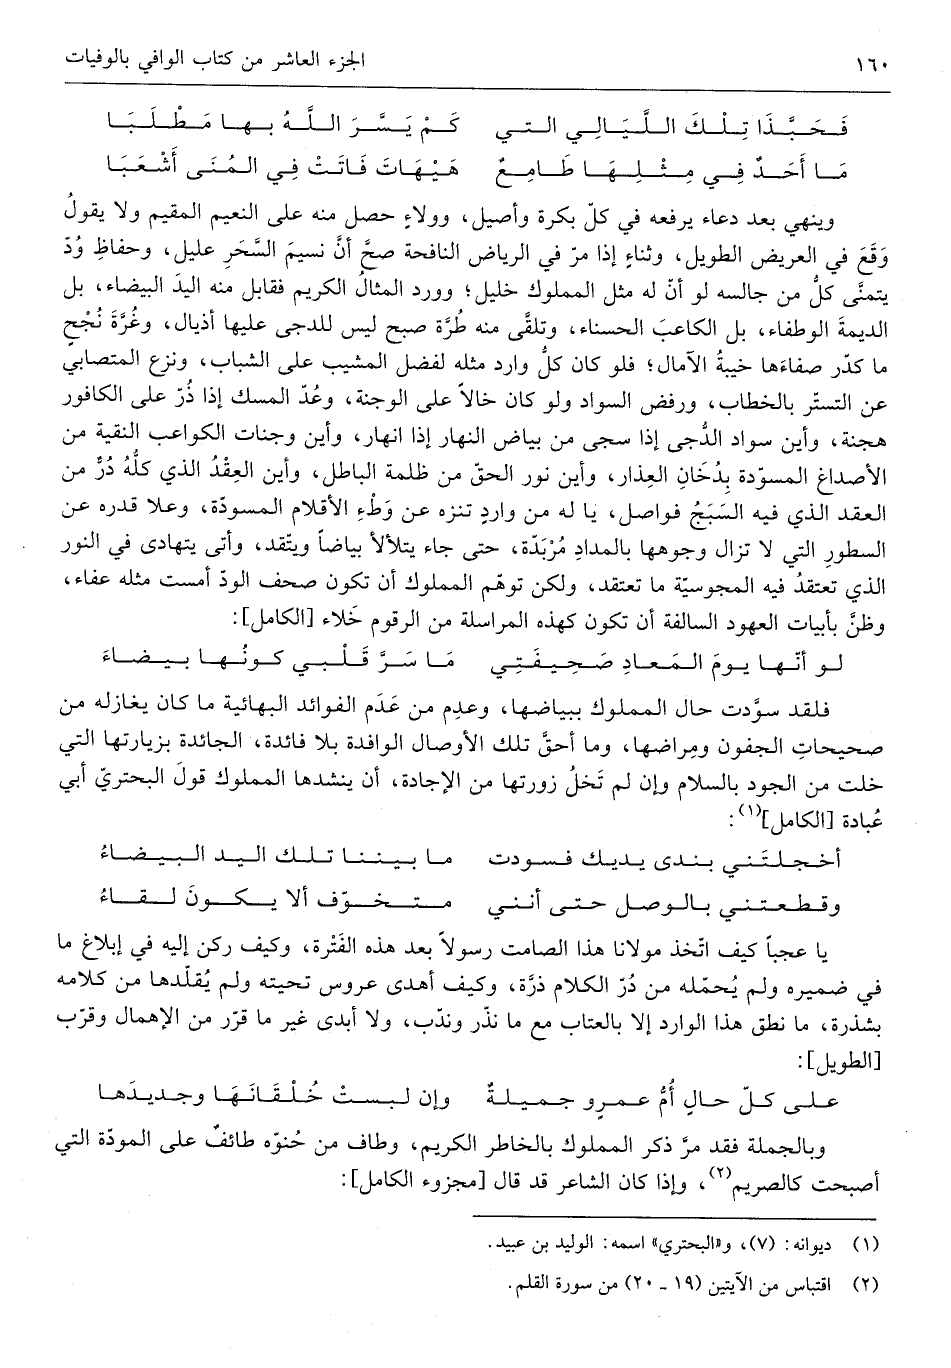 ١٦٠ الجزء العاشر من كتاب الوافي بالوفيات
فَحَبَّذَا تِلْكَ اللَّيَالِي التي كَمْ يَسَّرَ اللَّهُ بِهَا مَطْلَبَا
مَا أَحَدٌ فِي مِثْلِهَا طَامِعٌ هَيْهَاتَ فَاتَتْ فِي المُنَى أَشْعَبَا
وينهي بعد دعاء يرفعه في كلّ بكرة وأصيل، وولاءٍ حصل منه على النعيم المقيم ولا يقولُ
وَقَعَ في العريض الطويل، وثناءٍ إذا مرّ في الرياض النافحة صحَّ أنَّ نسيمَ السَّحَرِ عليل، وحفاظِ وُدّ
يتمنَّى كلُّ من جالسه لو أنّ له مثل المملوك خليل؛ وورد المثالُ الكريم فقابل منه اليدَ البيضاء، بل
الديمة الوطفاء، بل الكاعبَ الحسناء، وتلقَّى منه طُرَّة صبح ليس للدجى عليها أذيال، وغُرَّةَ نُجْحٍ
ما كدّر صفاءَها خيبةُ الآمال؛ فلو كان كلُّ وارد مثله لفضل المشيب على الشباب، ونزع المتصابي
عن التستّر بالخطاب، ورفض السواد ولو كان خالاً على الوجنة، وعُدّ المسك إذا ذُرّ على الكافور
هجنة، وأين سواد الدُّجى إذا سجى من بياض النهار إذا انهار، وأين وجنات الكواعب النقية من
الأصداغ المسوّدة بِدُخَانِ العِذار، وأين نور الحقّ من ظلمة الباطل، وأين العِقْدُ الذي كلُّهُ دُرٌّ من
العقد الذي فيه السَّبَجُ فواصل، يا له من واردٍ تنزه عن وَطْءِ الأقلام المسودّة، وعلا قدره عن
السطور التي لا تزال وجوهها بالمدادِ مُرْبَدّة، حتى جاء يتلألأ بياضاً ويتّقد، وأتى يتهادى في النور
الذي تعتقدُ فيه المجوسيّة ما تعتقد، ولكن توهّم المملوك أن تكون صحف الودّ أمست مثله عفاء،
وظنَّ بأبيات العهود السالفة أن تكون كهذه المراسلة من الرقوم خَلاء [الكامل]:
لو أنّها يومَ المَعادِ صَحِيفَتِي مَا سَرَّ قَلْبِي كونُها بيضاءَ
فلقد سوَّدت حال المملوك ببياضها، وعدِم من عَدَم الفوائد البهائية ما كان يغازله من
صحيحاتِ الجفون ومِراضها، وما أحقَّ تلك الأوصال الوافدة بلا فائدة، الجائدة بزيارتها التي
خلت من الجود بالسلام وإن لم تَخلُ زورتها من الإجادة، أن ينشدها المملوك قولَ البحتريّ أبي
عُبادة [الكامل](١):
أخجلتَني بندى يديك فسودت ما بيننا تلك اليد البيضاءُ
وقطعتني بالوصل حتى أنني متخوّف ألا يكونَ لقاءُ
يا عجباً كيف اتّخذ مولانا هذا الصامت رسولاً بعد هذه الفَتْرة، وكيف ركن إليه في إبلاغ ما
في ضميره ولم يُحمّله من دُرّ الكلام ذرَّة، وكيف أهدى عروس تحيته ولم يُقلّدها من كلامه
بشذرة، ما نطق هذا الوارد إلا بالعتاب مع ما نذّر وندّب، ولا أبدى غير ما قرّر من الإهمال وقرّب
[الطويل]:
على كلّ حالٍ أُمُّ عمرو جميلةٌ وإن لبستْ خُلْقَانَهَا وجديدَها
وبالجملة فقد مرَّ ذكر المملوك بالخاطر الكريم، وطاف من حُنوّه طائفٌ على المودّة التي
أصبحت كالصريم(٢)، وإذا كان الشاعر قد قال [مجزوء الكامل]:
(١) ديوانه: (٧)، و«البحتري» اسمه: الوليد بن عبيد.
(٢) اقتباس من الآيتين (١٩ ـ ٢٠) من سورة القلم.